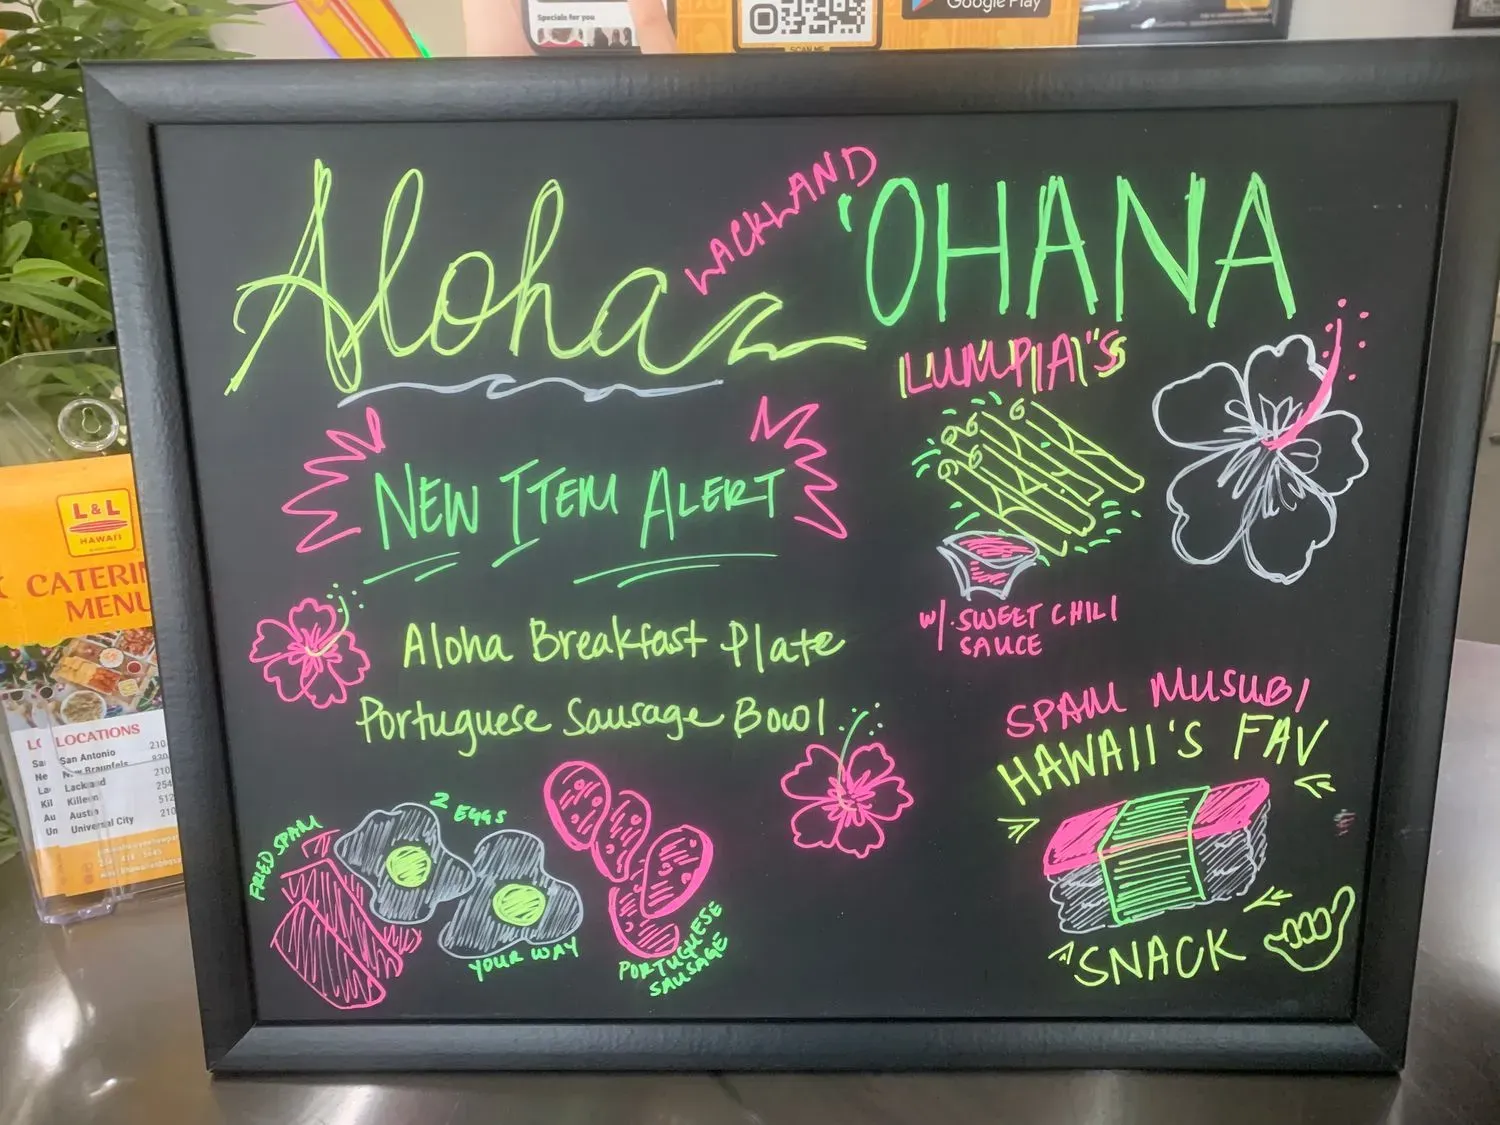 Specials for you
SCAN ME
Google Play
Aloha LACKLAND 'OHANA
NEW ITEM ALERT
Aloha Breakfast Plate
Portuguese Sausage Bowl
FRIED SPAM
2 EGGS
YOUR WAY
PORTUGUESE
SAUSAGE
LUMPIA'S
W/ SWEET CHILI
SAUCE
SPAM MUSUBI
HAWAII'S FAV
SNACK
L&L
HAWAII
CATERI
MENU
LOCATIONS
San Antonio 210
New Braunfels 830
Lackland 210
Killeen 254
Austin 512
Universal City 210